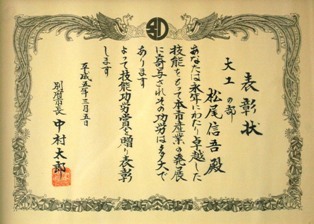 表彰状
大工の部
松尾信吾殿
あなたは永年にわたり卓越した
技能をもって本市産業の発展
に寄与されその功労は多大で
あります
よって技能功労賞を贈り表彰
します
平成五年三月五日
中村太郎